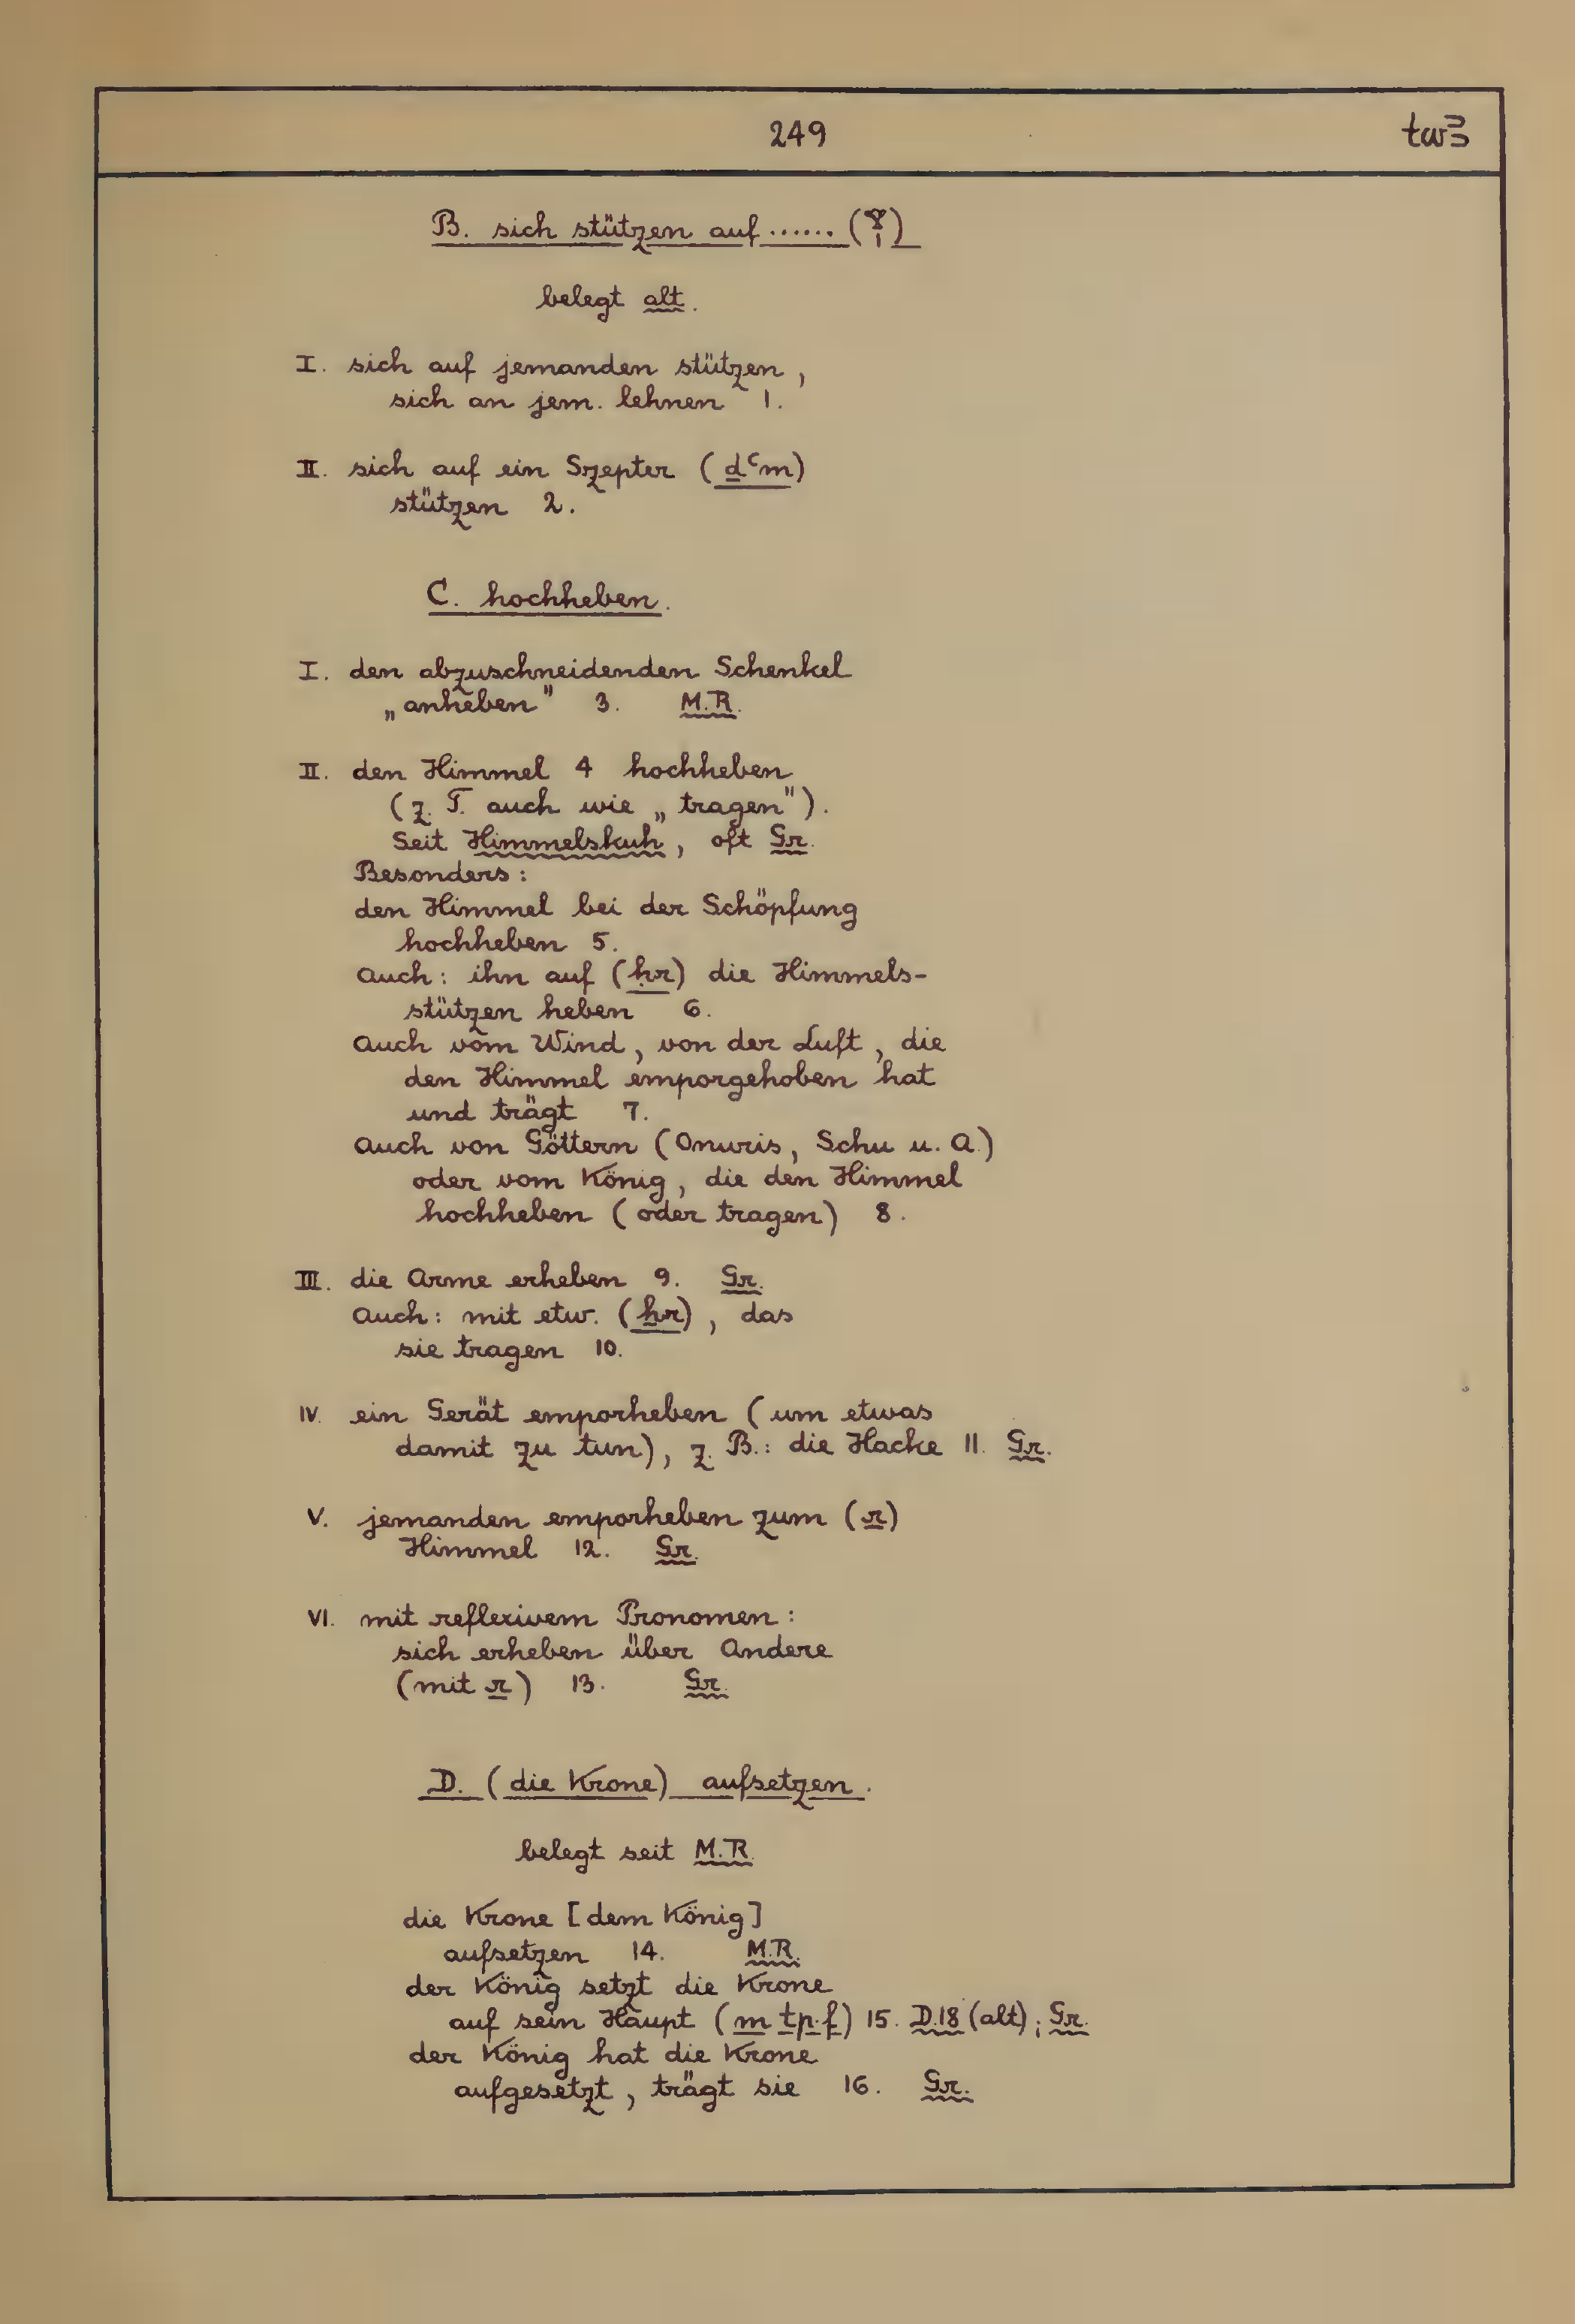 249
twꜣ
B. sich stützen auf ...... (𓁷𓏤)
belegt alt.
I. sich auf jemanden stützen,
sich an jem. lehnen 1.
II. sich auf ein Szepter (ḏꜥm)
stützen 2.
C. hochheben.
I. den abzuschneidenden Schenkel
„anheben" 3. M.R.
II. den Himmel 4 hochheben
(z. T. auch wie „tragen").
Seit Himmelskuh, oft Gr.
Besonders:
den Himmel bei der Schöpfung
hochheben 5.
Auch: ihn auf (ḥr) die Himmels-
stützen heben 6.
Auch vom Wind, von der Luft, die
den Himmel emporgehoben hat
und trägt 7.
Auch von Göttern (Onuris, Schu u. A.)
oder vom König, die den Himmel
hochheben (oder tragen) 8.
III. die Arme erheben 9. Gr.
Auch: mit etw. (ẖr), das
sie tragen 10.
IV. ein Gerät emporheben (um etwas
damit zu tun), z. B.: die Hacke 11. Gr.
V. jemanden emporheben zum (r)
Himmel 12. Gr.
VI. mit reflexivem Pronomen:
sich erheben über Andere
(mit r) 13. Gr.
D. (die Krone) aufsetzen.
belegt seit M.R.
die Krone [dem König]
aufsetzen 14. M.R.
der König setzt die Krone
auf sein Haupt (m tp·f) 15. D.18 (alt); Gr.
der König hat die Krone
aufgesetzt, trägt sie 16. Gr.